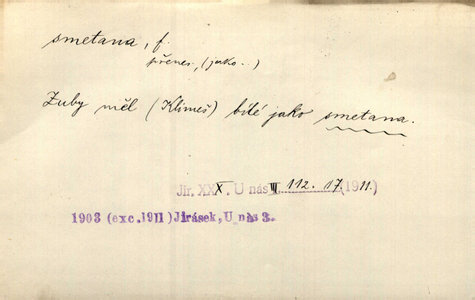 smetana, f.
přenes., (jako..)
Zuby měl (Klimeš) bílé jako smetana.
Jir. XXX. U nás III. 112. 17. (1911.)
1903 (exc. 1911) Jirásek, U nás 3.